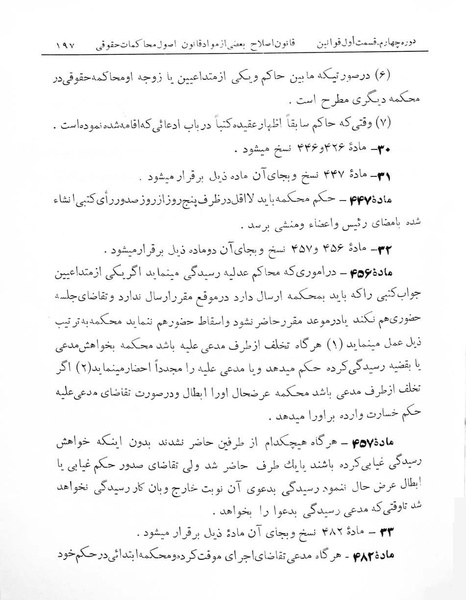 دوره چهارم، قسمت أول قوانین قانون اصلاح بعضی از مواد قانون اصول محاکمات حقوقی ۱۹۷
(۶) درصورتیکه مابین حاکم ویکی ازمتداعیین یا زوجه اومحاکمه حقوقی در
محکمه دیگری مطرح است .
(۷) وقتی که حاکم سابقاً اظهار عقیده کتباً درباب ادعائی که اقامه شده نموده است .
۳۰- مادۀ ۴۲۶ و ۴۴۶ نسخ میشود .
۳۱- مادۀ ۴۴۷ نسخ وبجای آن ماده ذیل برقرار میشود .
مادۀ ۴۴۷- حکم محکمه باید لااقل درظرف پنج روز از روز صدور رأی کتبی انشاء
شده بامضای رئیس واعضاء ومنشی برسد .
۳۲- مادۀ ۴۵۶ و ۴۵۷ نسخ وبجای آن دوماده ذیل برقرار میشود .
مادۀ ۴۵۶- دراموری که محاکم عدلیه رسیدگی مینماید اگر یکی ازمتداعیین
جواب کتبی راکه باید بمحکمه ارسال دارد درموقع مقرر ارسال ندارد وتقاضای جلسه
حضوری هم نکند یادرموعد مقرر حاضر نشود واسقاط حضورهم ننماید محکمه به ترتیب
ذیل عمل مینماید (۱) هرگاه تخلف ازطرف مدعی علیه باشد محکمه بخواهش مدعی
یا بقضیه رسیدگی کرده حکم میدهد ویا مدعی علیه را مجدداً احضار مینماید (۲) اگر
تخلف ازطرف مدعی باشد محکمه عرضحال اورا ابطال ودرصورت تقاضای مدعی علیه
حکم خسارت وارده بر اورا میدهد .
مادۀ ۴۵۷ - هرگاه هیچکدام از طرفین حاضر نشدند بدون اینکه خواهش
رسیدگی غیابی کرده باشند یایك طرف حاضر شد ولی تقاضای صدور حکم غیابی یا
ابطال عرض حال ننمود رسیدگی بدعوی آن نوبت خارج وبآن کار رسیدگی نخواهد
شد تاوقتی که مدعی رسیدگی بدعوا را بخواهد .
۳۳- مادۀ ۴۸۲ نسخ وبجای آن مادۀ ذیل برقرار میشود .
مادۀ ۴۸۲- هرگاه مدعی تقاضای اجرای موقت کرده ومحکمه ابتدائی درحکم خود